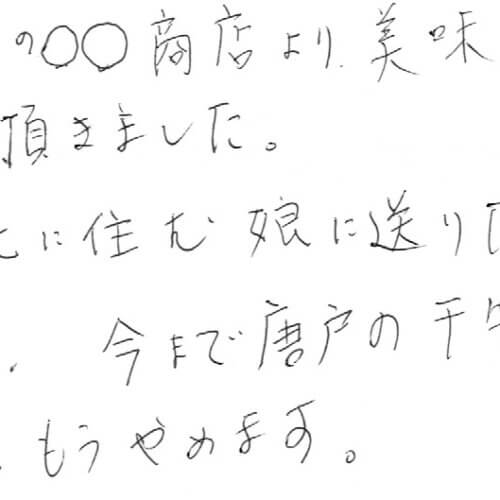 の○○商店より、美味
頂きました。
に住む娘に送り
、今まで唐戸の干
、もうやめます。